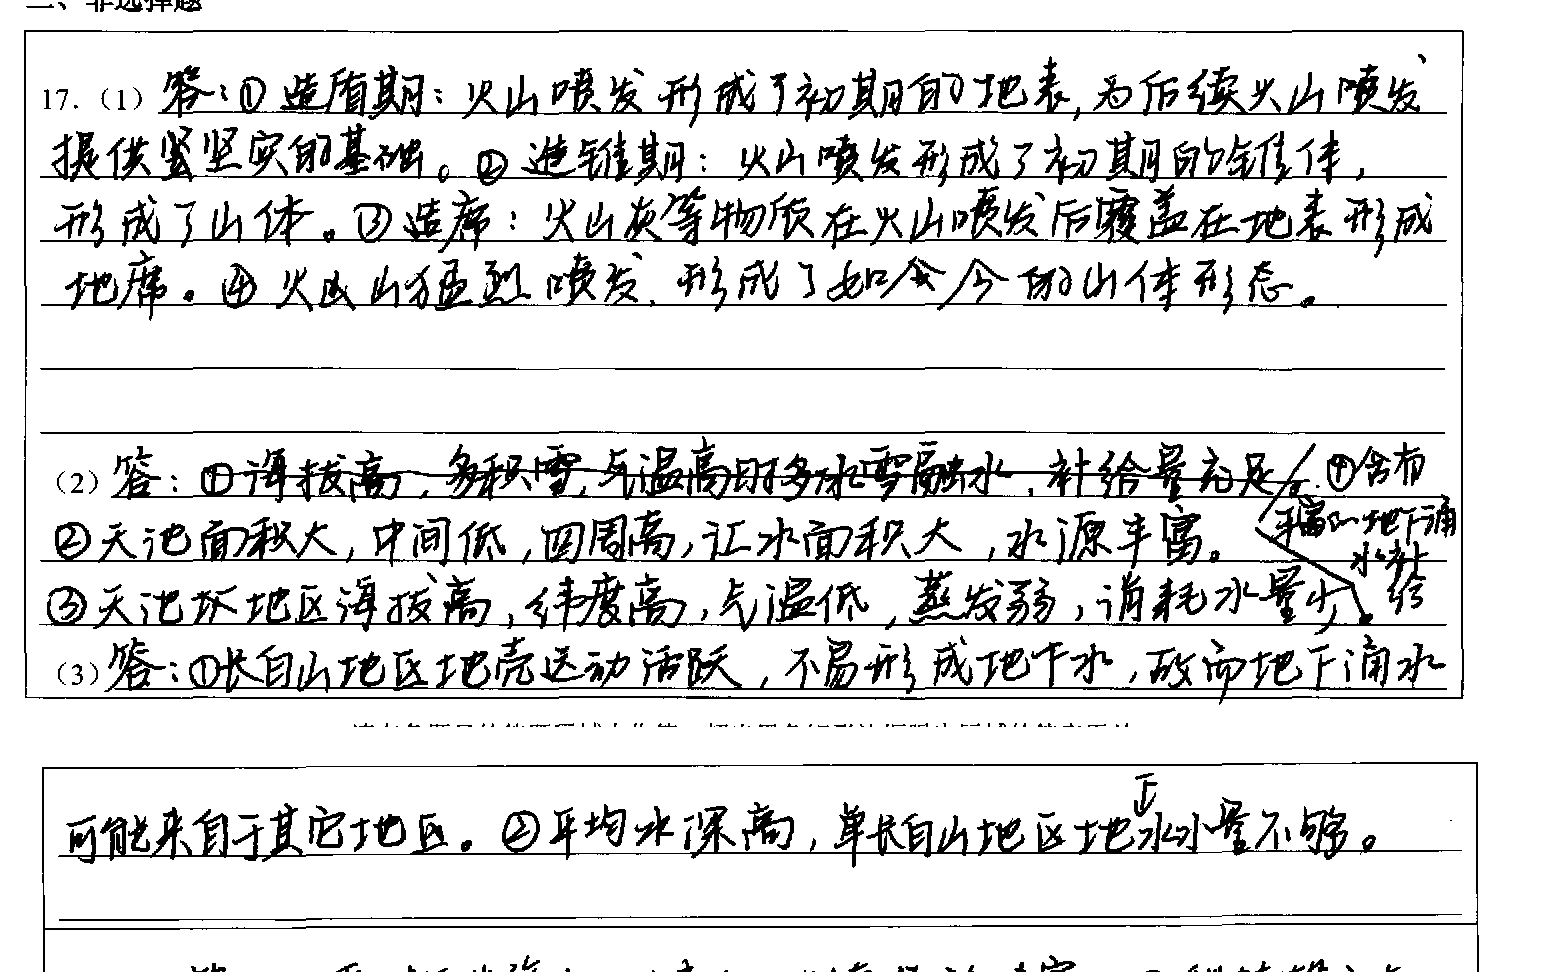 二、非选择题
17.（1）答：①造盾期：火山喷发形成了初期的地表，为后续火山喷发
提供坚实的基础。②造锥期：火山喷发形成了初期的锥体，
形成了山体。③造席：火山灰等物质在火山喷发后覆盖在地表形成
地席。④火山猛烈喷发，形成了如今的山体形态。
（2）答：①海拔高，多积雪，气温高时多冰雪融水，补给量充足。④含有
丰富的地下涌
水补
给
②天池面积大，中间低，四周高，让水面积大，水源丰富。
③天池地区海拔高，纬度高，气温低，蒸发弱，消耗水量少。
（3）答：①长白山地区地壳运动活跃，不易形成地下水，故而地下涌水
可能来自于其它地区。②平均水深高，单长白山地区地下水水量不够。